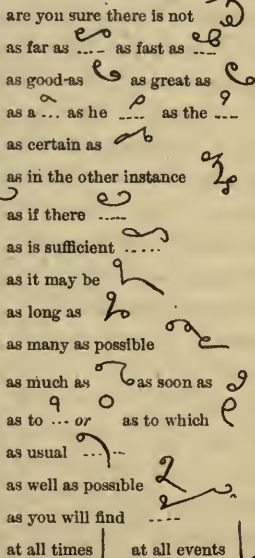 are you sure there is not
as far as .... as fast as ....
as good as as great as
as a ... as he .... as the ....
as certain as
as in the other instance
as if there .....
as is sufficient .....
as it may be
as long as
as many as possible
as much as as soon as
as to ... or as to which
as usual .....
as well as possible
as you will find ....
at all times at all events